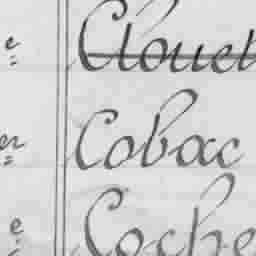 Clouet
Cobac
Coche